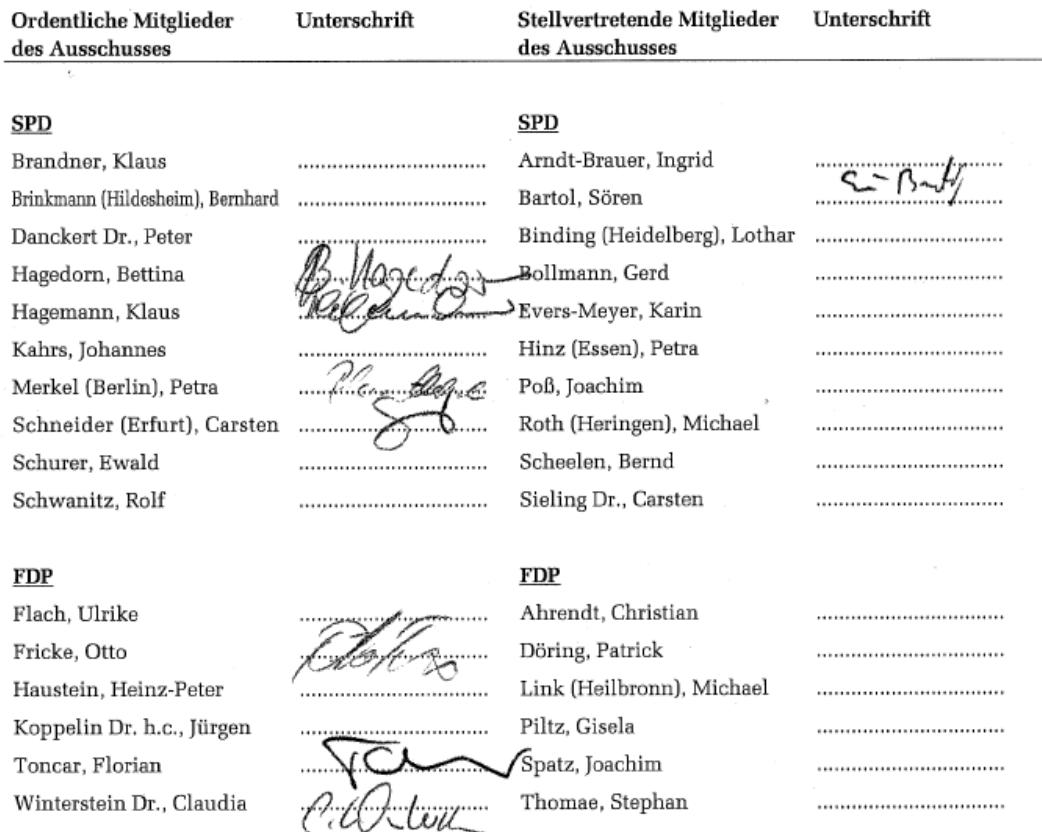 Ordentliche Mitglieder Unterschrift Stellvertretende Mitglieder Unterschrift
des Ausschusses des Ausschusses
SPD SPD
Brandner, Klaus .............................. Arndt-Brauer, Ingrid ..............................
Brinkmann (Hildesheim), Bernhard .............................. Bartol, Sören ..............................
Danckert Dr., Peter .............................. Binding (Heidelberg), Lothar ..............................
Hagedorn, Bettina B. Hagedorn Bollmann, Gerd ..............................
Hagemann, Klaus .............................. Evers-Meyer, Karin ..............................
Kahrs, Johannes .............................. Hinz (Essen), Petra ..............................
Merkel (Berlin), Petra .............................. Poß, Joachim ..............................
Schneider (Erfurt), Carsten .............................. Roth (Heringen), Michael ..............................
Schurer, Ewald .............................. Scheelen, Bernd ..............................
Schwanitz, Rolf .............................. Sieling Dr., Carsten ..............................
FDP FDP
Flach, Ulrike .............................. Ahrendt, Christian ..............................
Fricke, Otto .............................. Döring, Patrick ..............................
Haustein, Heinz-Peter .............................. Link (Heilbronn), Michael ..............................
Koppelin Dr. h.c., Jürgen .............................. Piltz, Gisela ..............................
Toncar, Florian .............................. Spatz, Joachim ..............................
Winterstein Dr., Claudia .............................. Thomae, Stephan ..............................